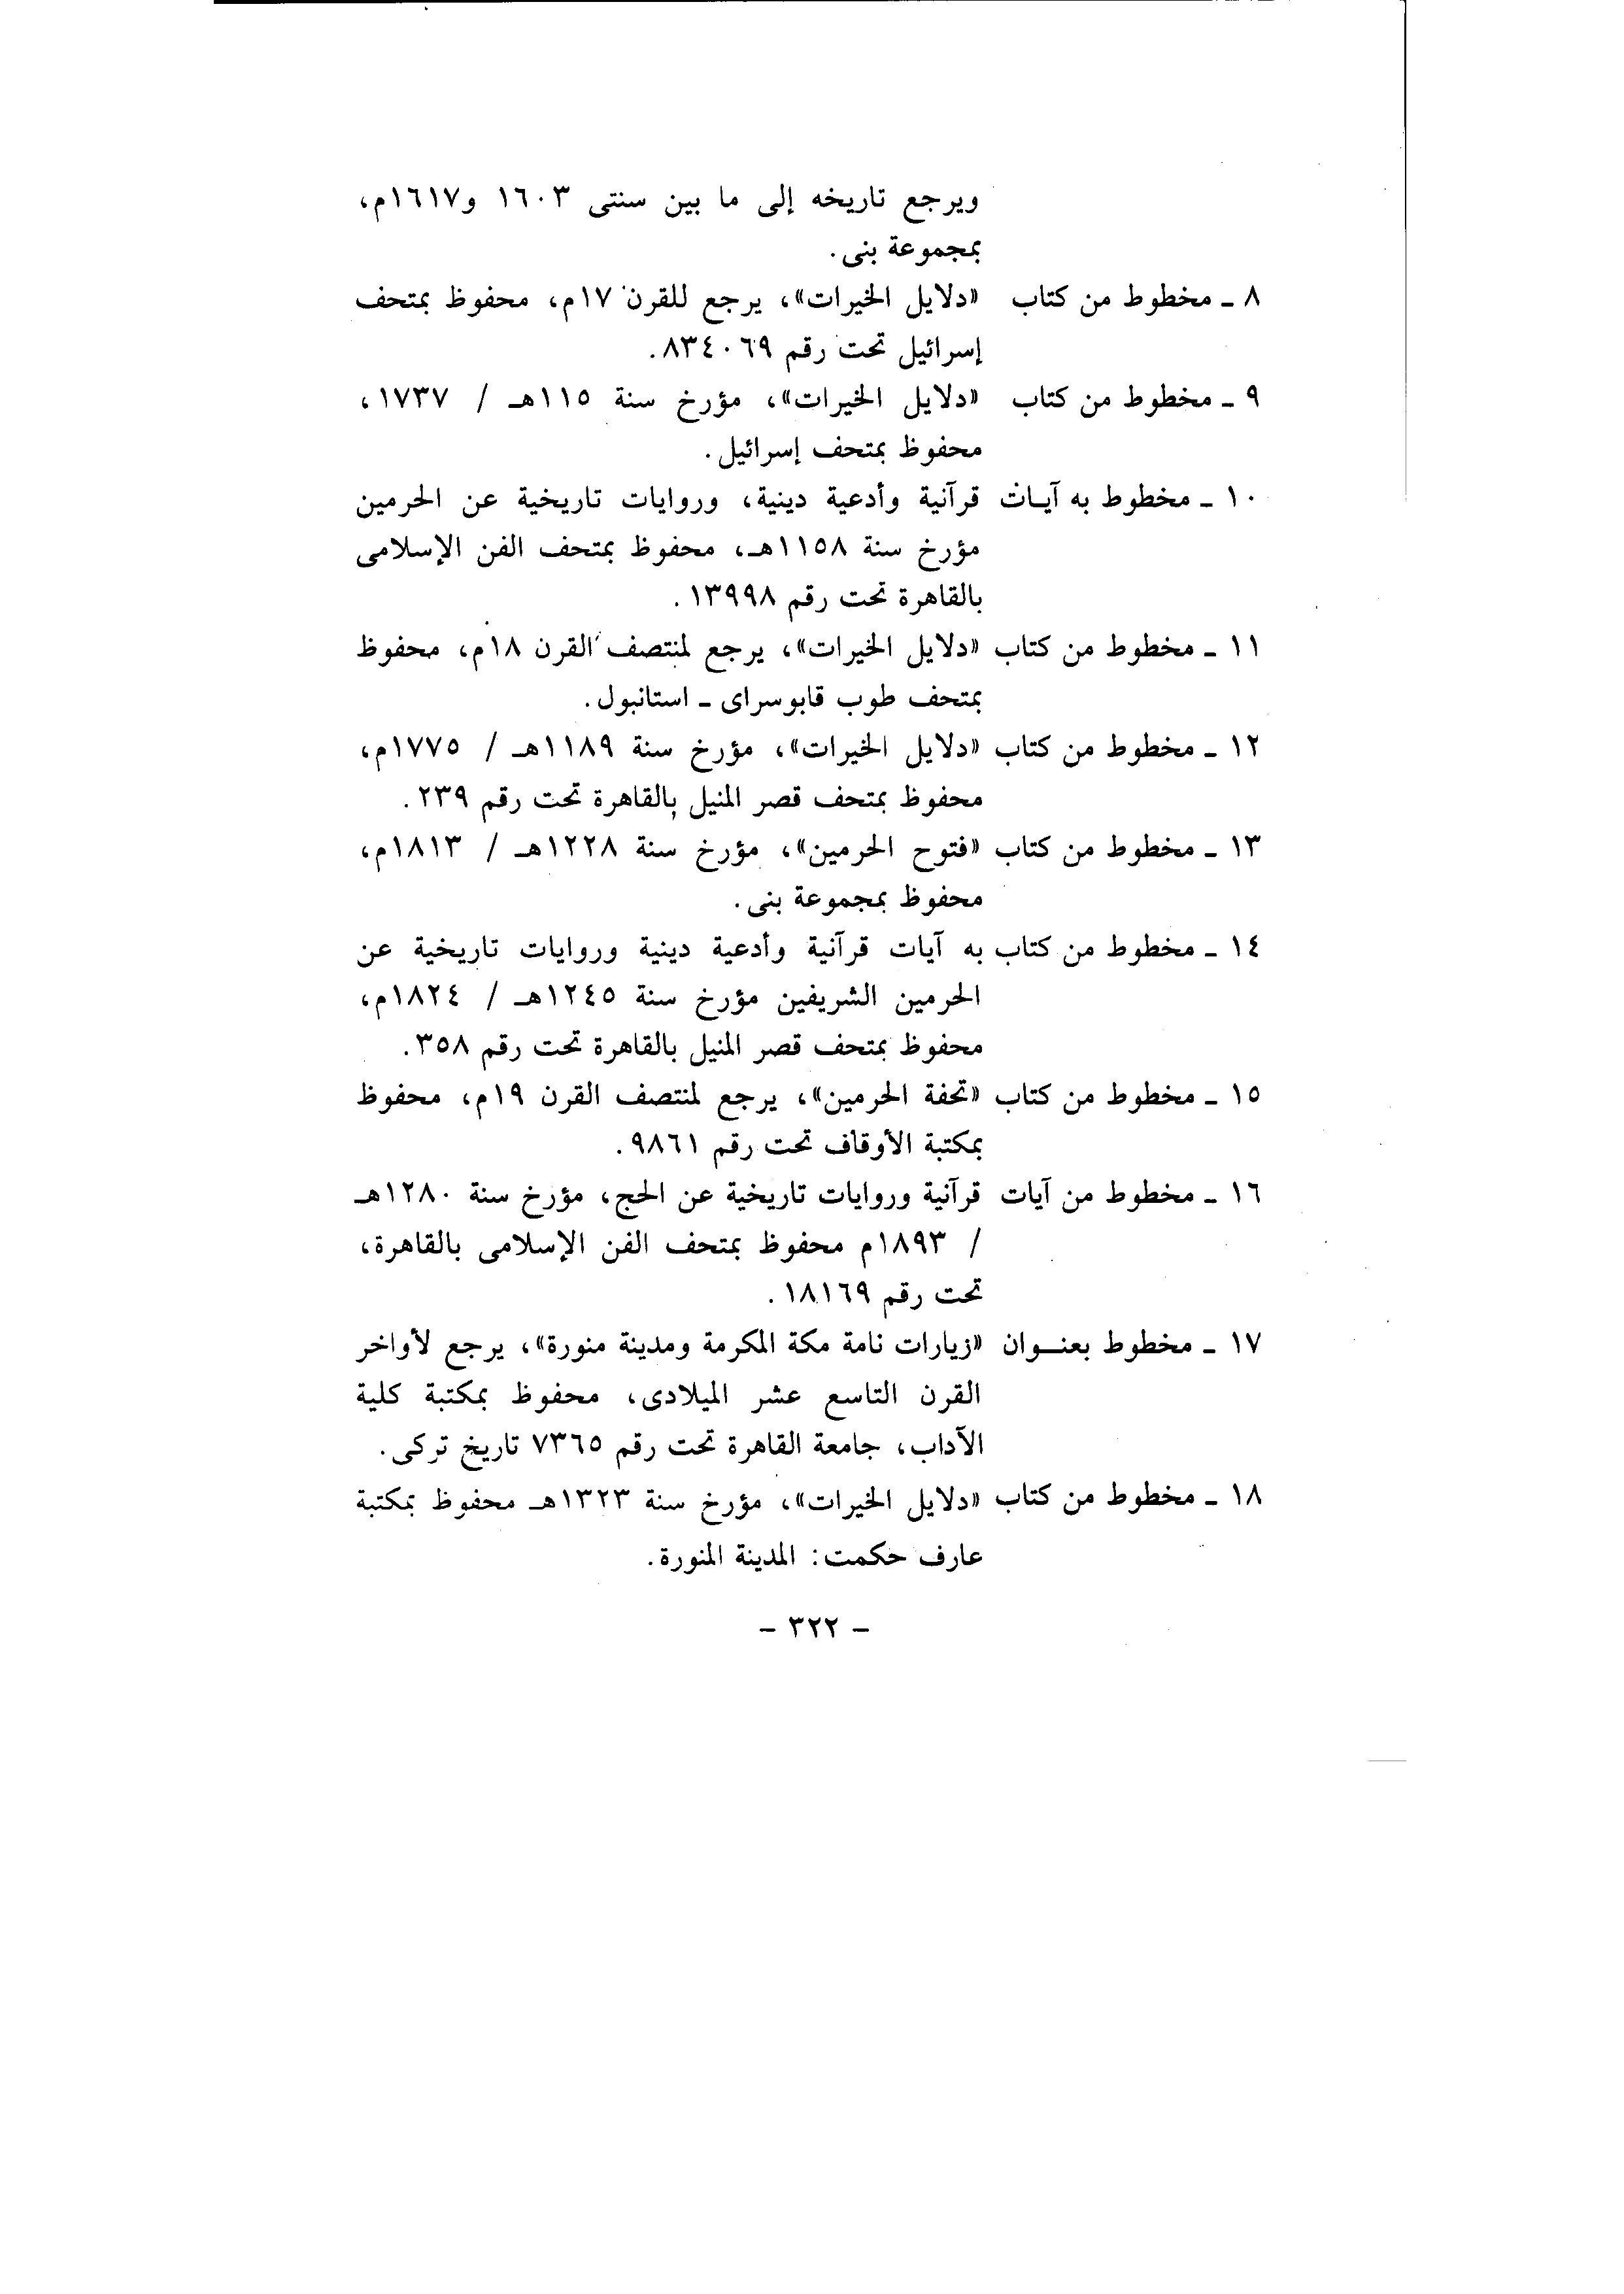 ويرجع تاريخه إلى ما بين سنتى ١٦٠٣ و١٦١٧م،
بمجموعة بنى.
٨ ـ مخطوط من كتاب «دلايل الخيرات»، يرجع للقرن ١٧م، محفوظ بمتحف
إسرائيل تحت رقم ٨٣٤٠٦٩.
٩ ـ مخطوط من كتاب «دلايل الخيرات»، مؤرخ سنة ١١٥هـ / ١٧٣٧،
محفوظ بمتحف إسرائيل.
١٠ ـ مخطوط به آيـات قرآنية وأدعية دينية، وروايات تاريخية عن الحرمين
مؤرخ سنة ١١٥٨هـ، محفوظ بمتحف الفن الإسلامى
بالقاهرة تحت رقم ١٣٩٩٨.
١١ ـ مخطوط من كتاب «دلايل الخيرات»، يرجع لمنتصف القرن ١٨م، محفوظ
بمتحف طوب قابوسراى ـ استانبول.
١٢ ـ مخطوط من كتاب «دلايل الخيرات»، مؤرخ سنة ١١٨٩هـ / ١٧٧٥م،
محفوظ بمتحف قصر المنيل بالقاهرة تحت رقم ٢٣٩.
١٣ ـ مخطوط من كتاب «فتوح الحرمين»، مؤرخ سنة ١٢٢٨هـ / ١٨١٣م،
محفوظ بمجموعة بنى.
١٤ ـ مخطوط من كتاب به آيات قرآنية وأدعية دينية وروايات تاريخية عن
الحرمين الشريفين مؤرخ سنة ١٢٤٥هـ / ١٨٢٤م،
محفوظ بمتحف قصر المنيل بالقاهرة تحت رقم ٣٥٨.
١٥ ـ مخطوط من كتاب «تحفة الحرمين»، يرجع لمنتصف القرن ١٩م، محفوظ
بمكتبة الأوقاف تحت رقم ٩٨٦١.
١٦ ـ مخطوط من آيات قرآنية وروايات تاريخية عن الحج، مؤرخ سنة ١٢٨٠هـ
/ ١٨٩٣م محفوظ بمتحف الفن الإسلامى بالقاهرة،
تحت رقم ١٨١٦٩.
١٧ ـ مخطوط بعنـــوان «زيارات نامة مكة المكرمة ومدينة منورة»، يرجع لأواخر
القرن التاسع عشر الميلادى، محفوظ بمكتبة كلية
الآداب، جامعة القاهرة تحت رقم ٧٣٦٥ تاريخ تركى.
١٨ ـ مخطوط من كتاب «دلايل الخيرات»، مؤرخ سنة ١٣٢٣هـ محفوظ بمكتبة
عارف حكمت: المدينة المنورة.
– ٣٢٢ –